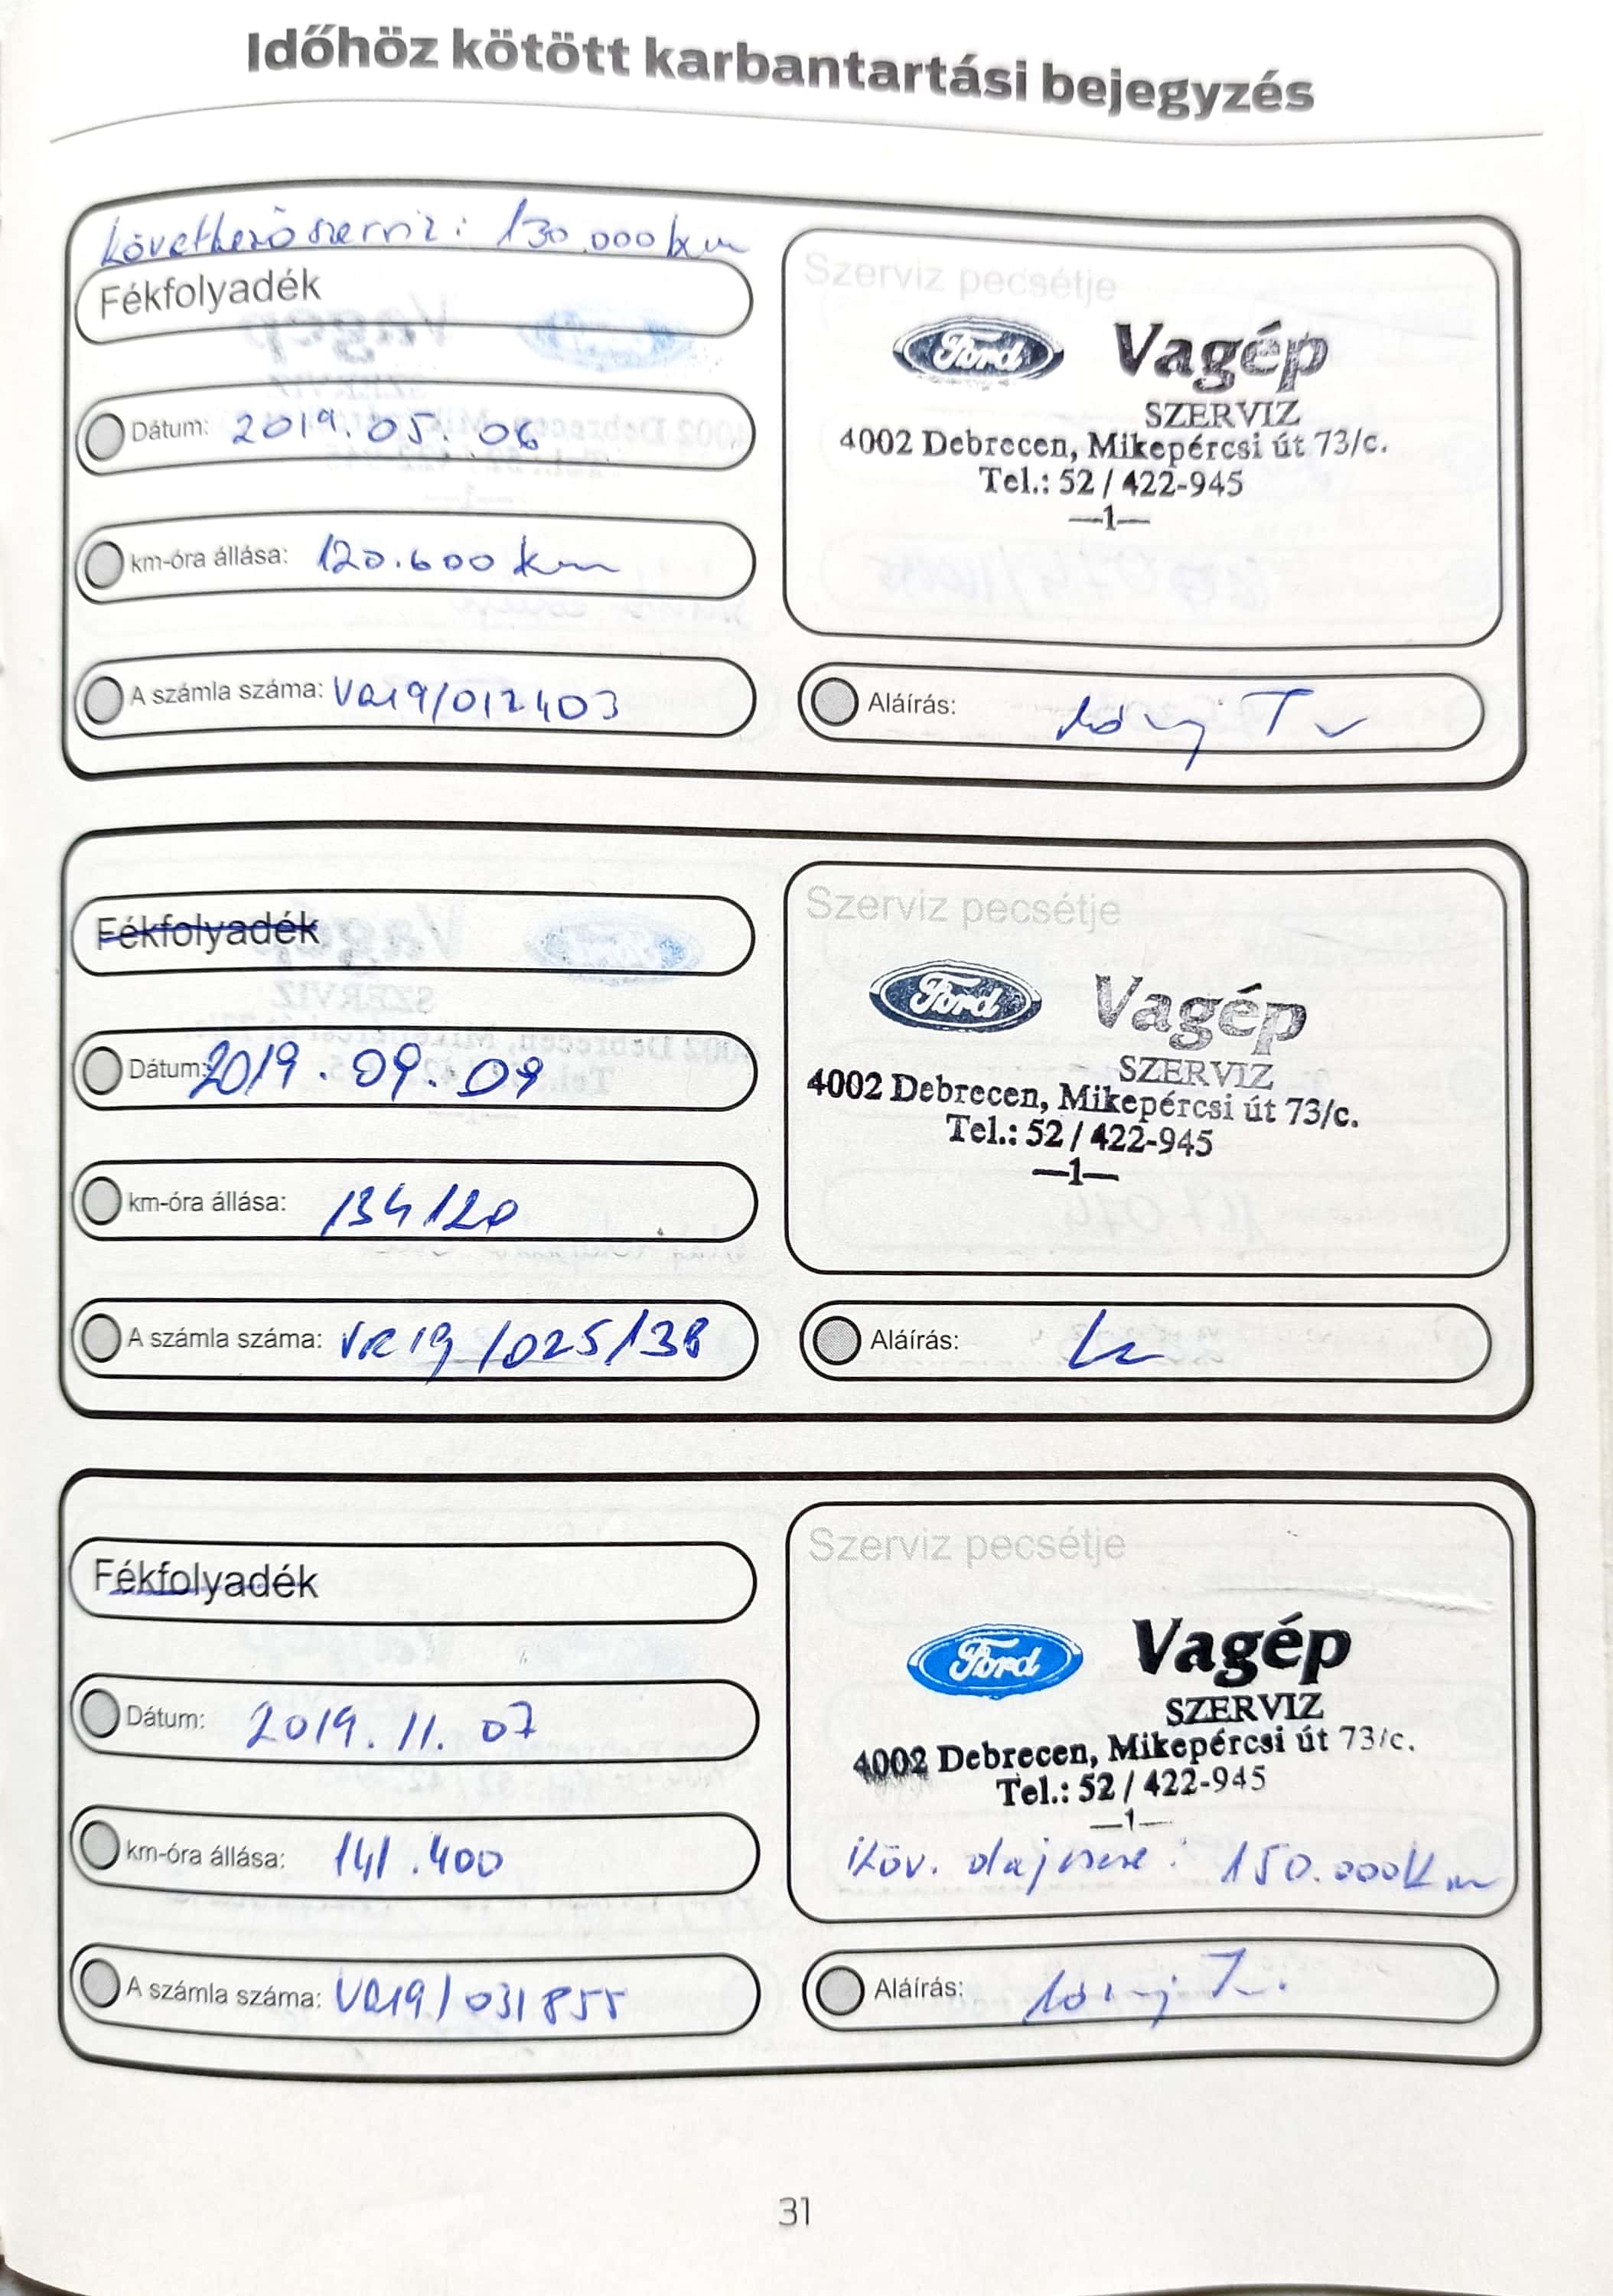 Időhöz kötött karbantartási bejegyzés
Következő szerviz: 130.000 km
Fékfolyadék
Dátum: 2019.05.06
km-óra állása: 120.600 km
A számla száma: VR19/012403
Szerviz pecsétje
Ford Vagép
SZERVIZ
4002 Debrecen, Mikepércsi út 73/c.
Tel.: 52 / 422-945
—1—
Aláírás:
Fékfolyadék
Dátum: 2019.09.09
km-óra állása: 134120
A számla száma: VR19/025138
Szerviz pecsétje
Ford Vagép
SZERVIZ
4002 Debrecen, Mikepércsi út 73/c.
Tel.: 52 / 422-945
—1—
Aláírás:
Fékfolyadék
Dátum: 2019.11.07
km-óra állása: 141.400
A számla száma: VR19/031855
Szerviz pecsétje
Ford Vagép
SZERVIZ
4002 Debrecen, Mikepércsi út 73/c.
Tel.: 52 / 422-945
—1—
Köv. olajcsere: 150.000Km
Aláírás:
31